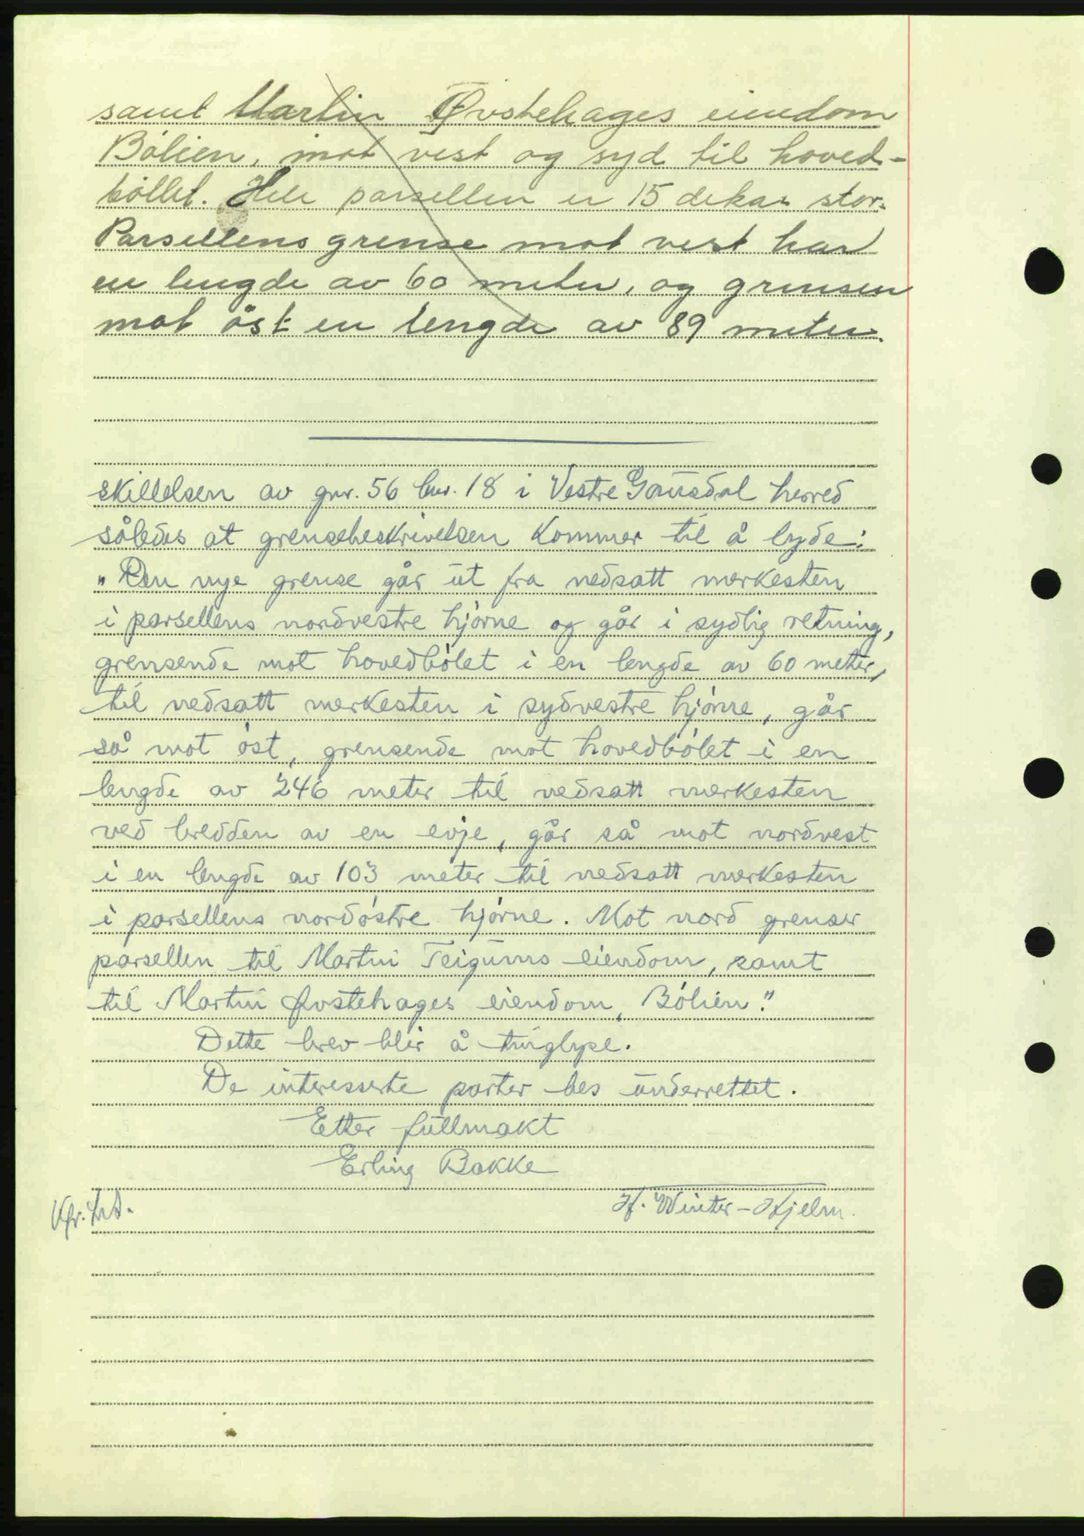 samt Martin Øvstehages eiendom
Bölien, mot vest og syd til hoved-
böllet. Hele parsellen er 15 dekar stor.
Parsellens grense mot vest har
en lengde av 60 meter, og grensen
mot öst en lengde av 89 meter.
skillelsen av gnr. 56 bnr. 18 i Vestre Gausdal herred
således at grensebeskrivelsen kommer til å lyde:
"Den nye grense går ut fra nedsatt merkesten
i parsellens nordvestre hjörne og går i sydlig retning,
grensende mot hovedbölet i en lengde av 60 meter,
til nedsatt merkesten i sydvestre hjörne, går
så mot öst, grensende mot hovedbölet i en
lengde av 246 meter til nedsatt merkesten
ved bredden av en evje, går så mot nordvest
i en lengde av 103 meter til nedsatt merkesten
i parsellens nordöstre hjörne. Mot nord grenser
parsellen til Martin Teigums eiendom, samt
til Martin Øvstehages eiendom, Bölien."
Dette brev blir å tinglyse.
De interesserte parter bes underrettet.
Etter fullmakt
Erling Bakke
H. Winter-Hjelm.